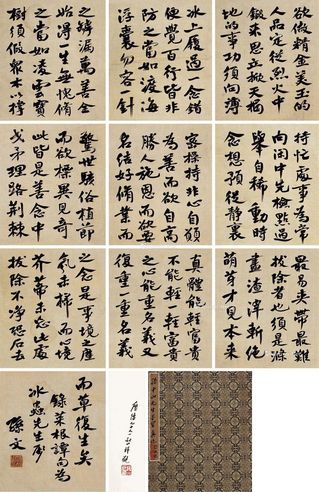 欲做精金美玉的
人品定從烈火中
鍛來思立掀天揭
地的事功須向薄
冰上履過一念錯
便覺百行皆非
防之當如渡海
浮囊勿容一針
之罅漏萬善全
始得一生無愧脩
之當如凌雲寶
樹須假眾木以撐
持忙處事為常
向閑中先檢點過
舉自稀動時
念想預從靜裏
密操持非心自息
為善而欲自高
勝人施恩而欲要
名結好脩業而
驚世駭俗植節
而欲標異見奇
此皆是善念中
戈矛理路荊棘
最易夾帶最難
拔除者也須是滌
盡渣滓斬絕
萌芽才見本來
真體能輕富貴
不能輕一輕富貴
之心能重名義又
復重一重名義
之念是事境之塵
氛未掃而心境之
芥蒂未忘此處
拔除不淨恐石去
而草復生矣
錄菜根譚句為
冰蟲先生屬
孫文